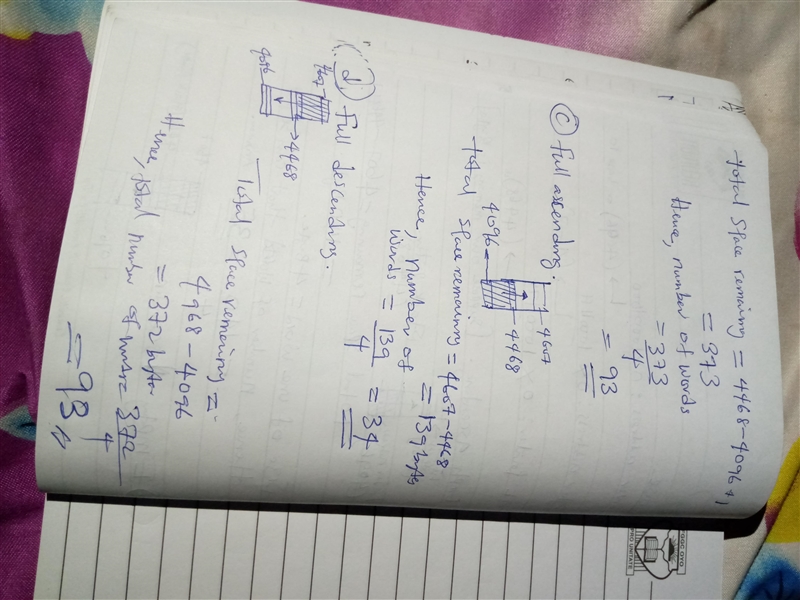 Total space remaining = 4468-4096+1
= 373
Hence, number of words
= 373
4
= 93
(C) Full ascending.
4607
4096
4468
total space remaining = 4607-4468
= 139 bytes
Hence, number of
words = 139
4
= 34
(d) Full descending.
4607
4468
4096
Total space remaining =
4468-4096
= 372 bytes
Hence, total number of words = 372
4
= 93
FGGC OYO
PRO UNITATE